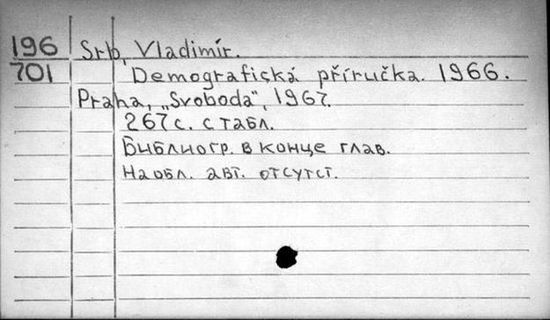 196 Srb, Vladimír.
701 Demografická příručka. 1966.
Praha, „Svoboda", 1967.
267 с. с табл.
Библиогр. в конце глав.
На обл. авт. отсутст.